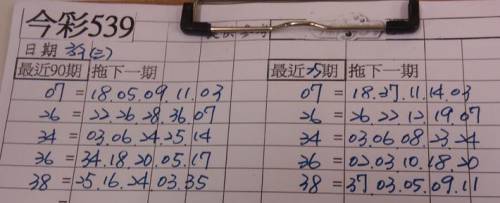 今彩539
日期
最近90期 拖下一期
07 = 18.05.09.11.03
26 = 22.26.28.36.07
34 = 03.06.24.25.14
36 = 34.18.20.05.17
38 = 25.16.24.03.35
最近25期 拖下一期
07 = 18.27.11.14.03
26 = 26.22.12.19.07
34 = 03.06.08.23.24
36 = 02.03.10.18.20
38 = 37.03.05.09.11